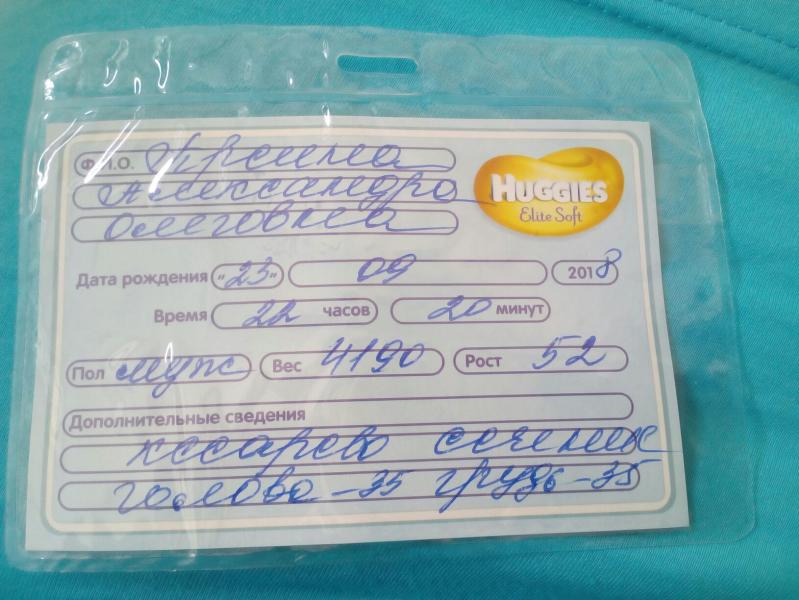 Ф.И.О.
Александра
Олеговна
HUGGIES
Elite Soft
Дата рождения "23" 09 2018
Время 22 часов 20 минут
Пол муж Вес 4190 Рост 52
Дополнительные сведения
кесарево сечение
голова-35 грудь-35